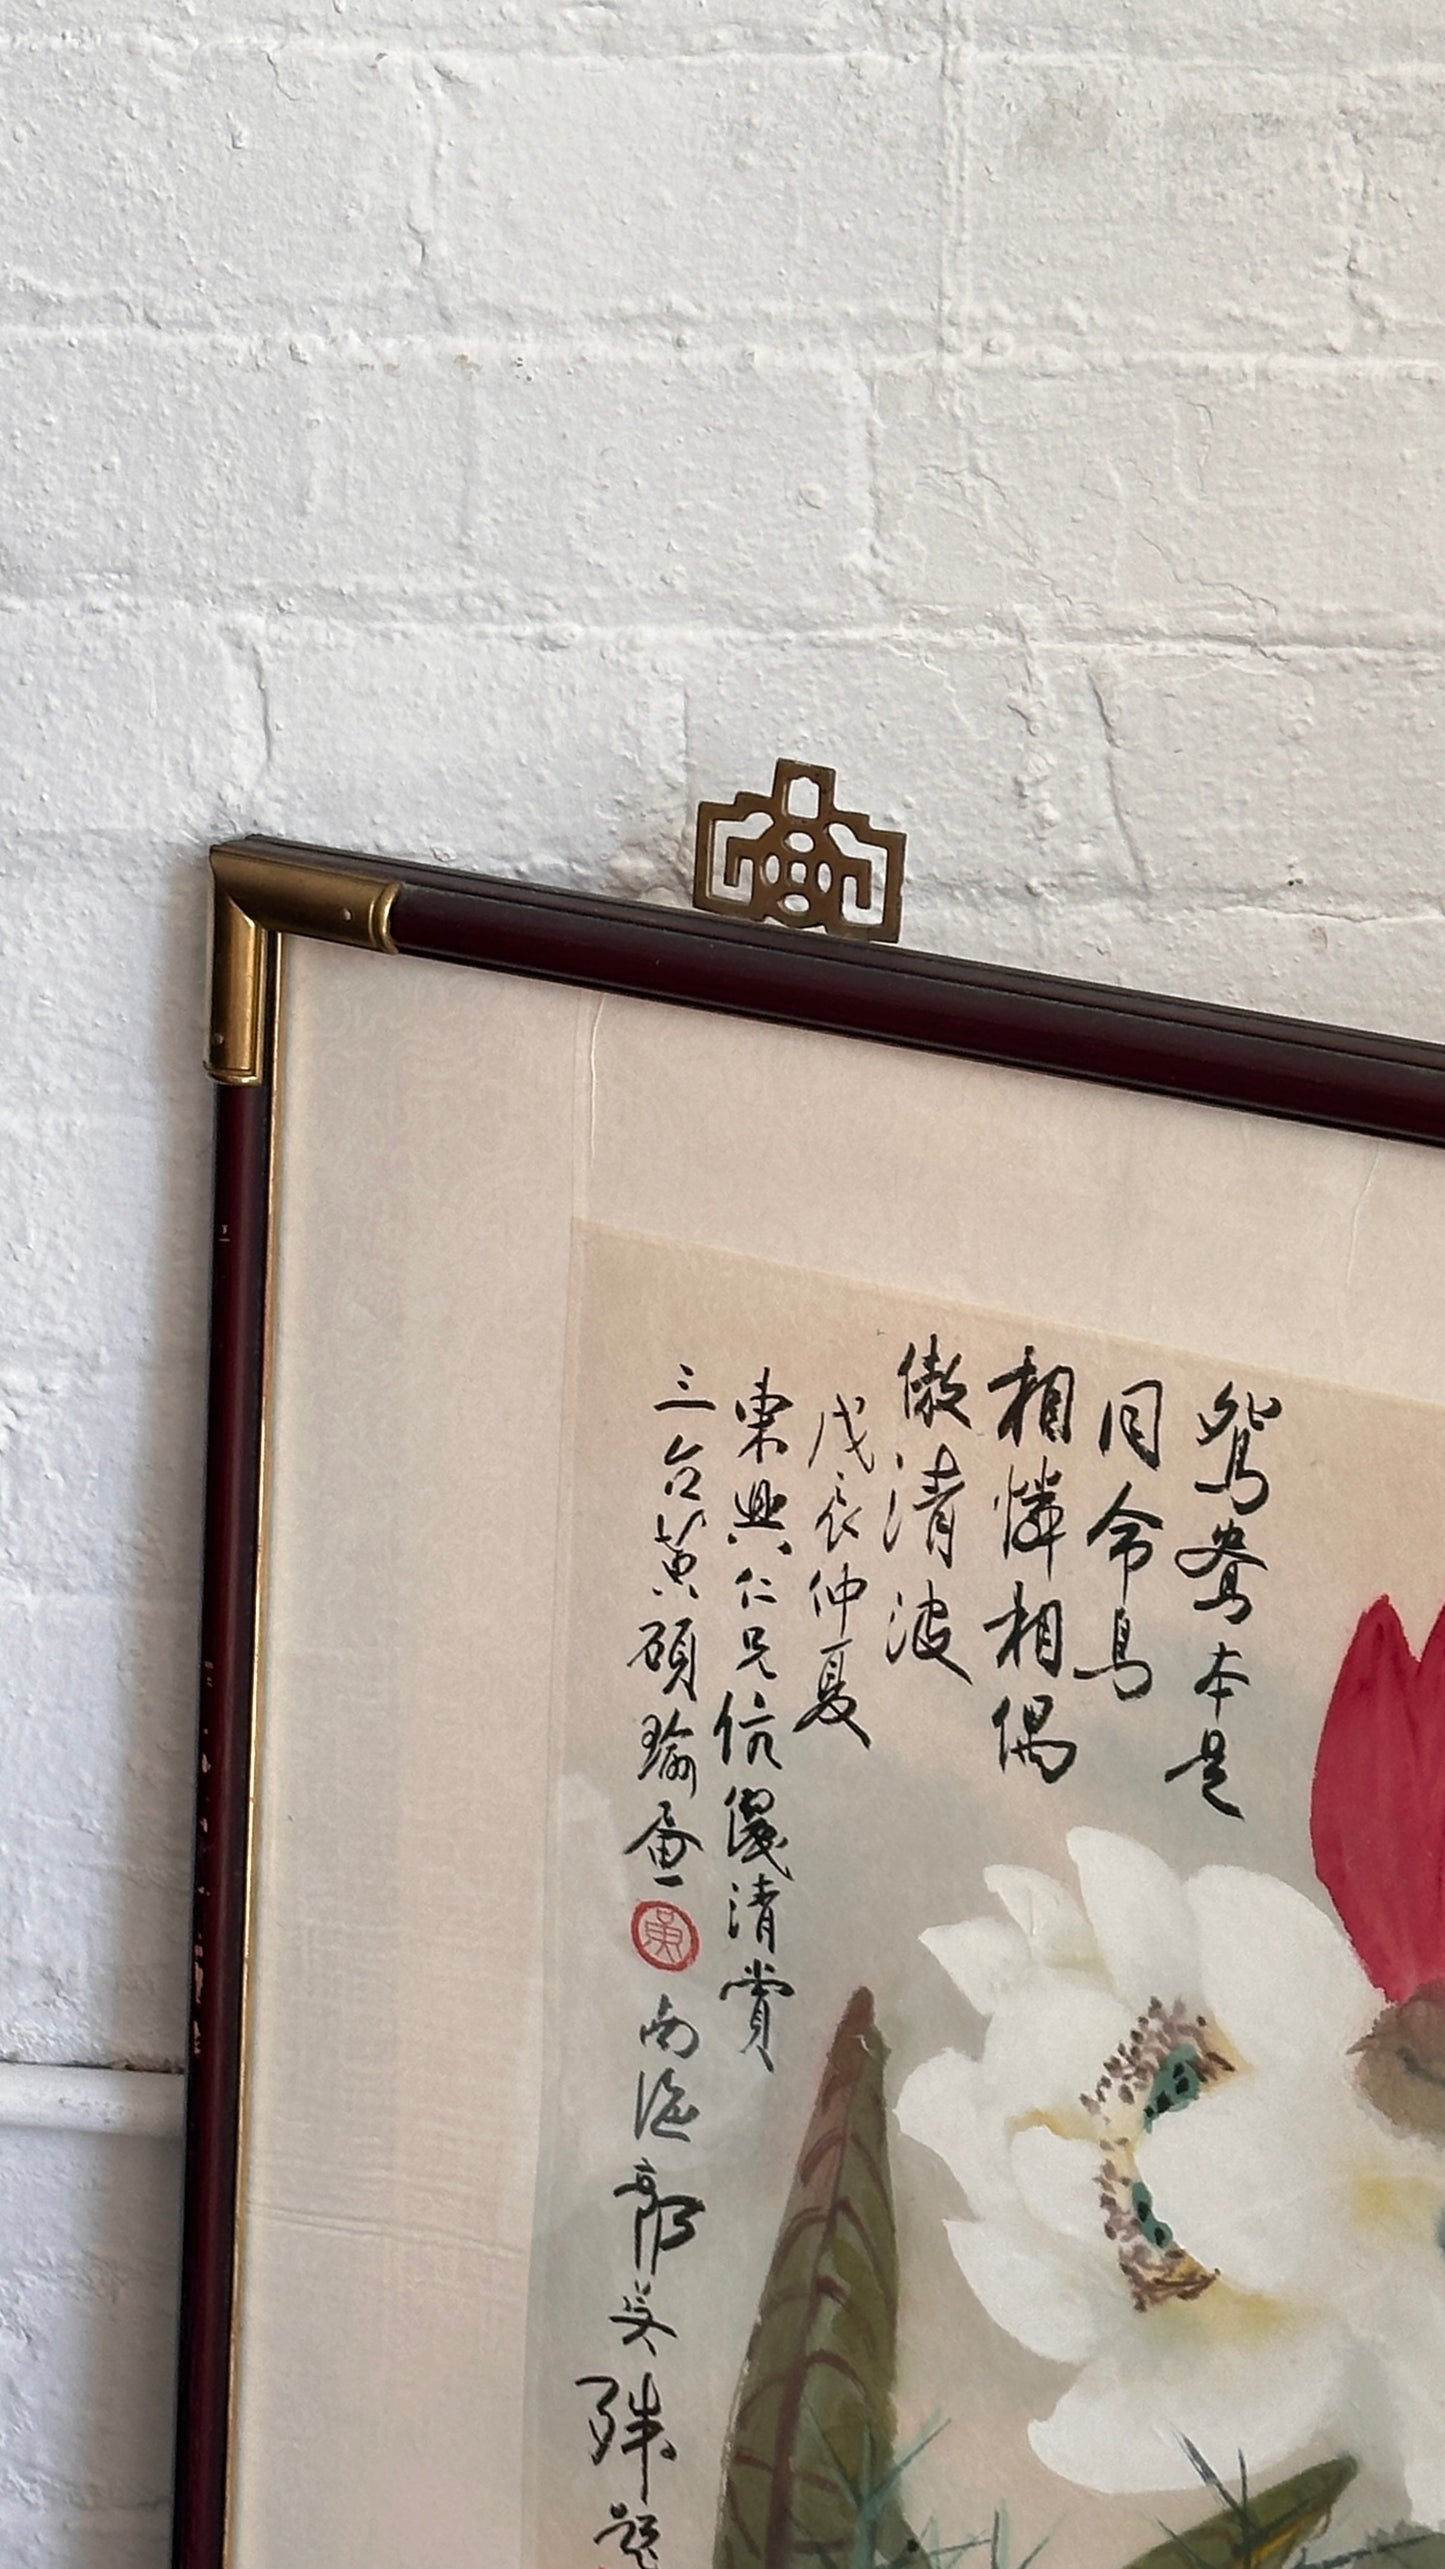 鴛鴦本是
同命鳥
相憐相偶
傲清波
戊辰仲夏
東興仁兄伉儷清賞
三台黃碩瑜畫
黃
南海郭美珠題